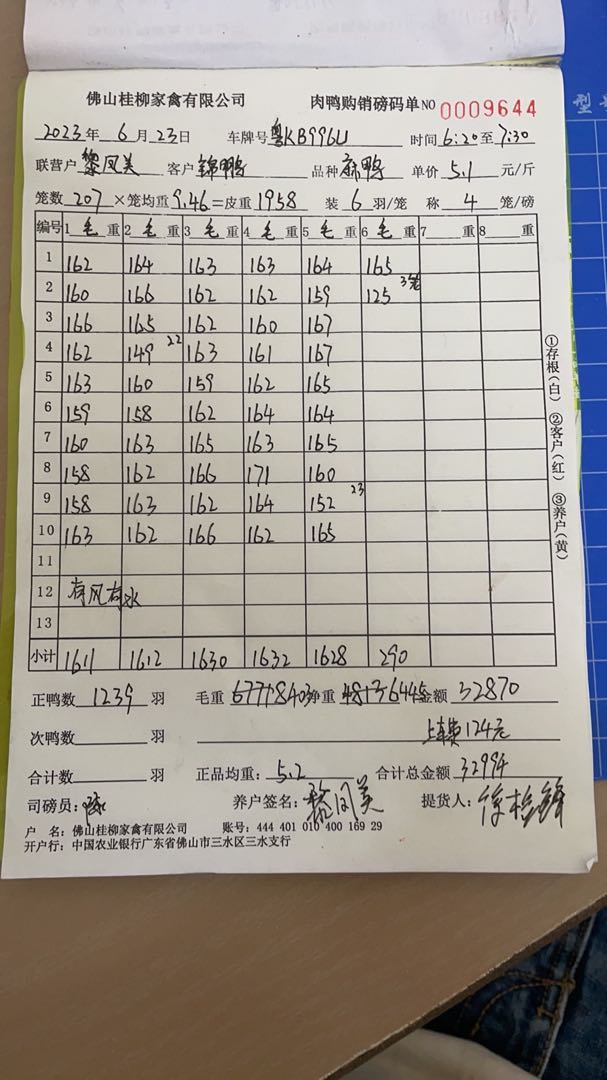 佛山桂柳家禽有限公司 肉鸭购销磅码单 NO 0009644
2023年 6月 23日 车牌号 粤KB996U 时间 6:20至7:30
联营户 黎凤美 客户 锦鸭 品种 麻鸭 单价 5.1 元/斤
笼数 207 ×笼均重 9.46 =皮重 1958 装 6 羽/笼 称 4 笼/磅
编号 1 毛 重 2 毛 重 3 毛 重 4 毛 重 5 毛 重 6 毛 重 7 重 8 重
1 162 164 163 163 164 165
2 160 166 162 162 159 125 3笼
3 166 165 162 160 167
4 162 149 22 163 161 167
5 163 160 159 162 165
6 159 158 162 164 164
7 160 163 165 163 165
8 158 162 166 171 160
9 158 163 162 164 152 23
10 163 162 166 162 165
11
12 有风有水
13
小计 1611 1612 1630 1632 1628 290
正鸭数 1239 羽 毛重 8403 净重 6445 金额 32870
次鸭数 羽 上车费124元
合计数 羽 正品均重: 5.2 合计总金额 32994
司磅员: 养户签名: 黎凤美 提货人:
户 名: 佛山桂柳家禽有限公司 账号: 444 401 010 400 169 29
开户行: 中国农业银行广东省佛山市三水区三水支行
①存根(白) ②客户(红) ③养户(黄)